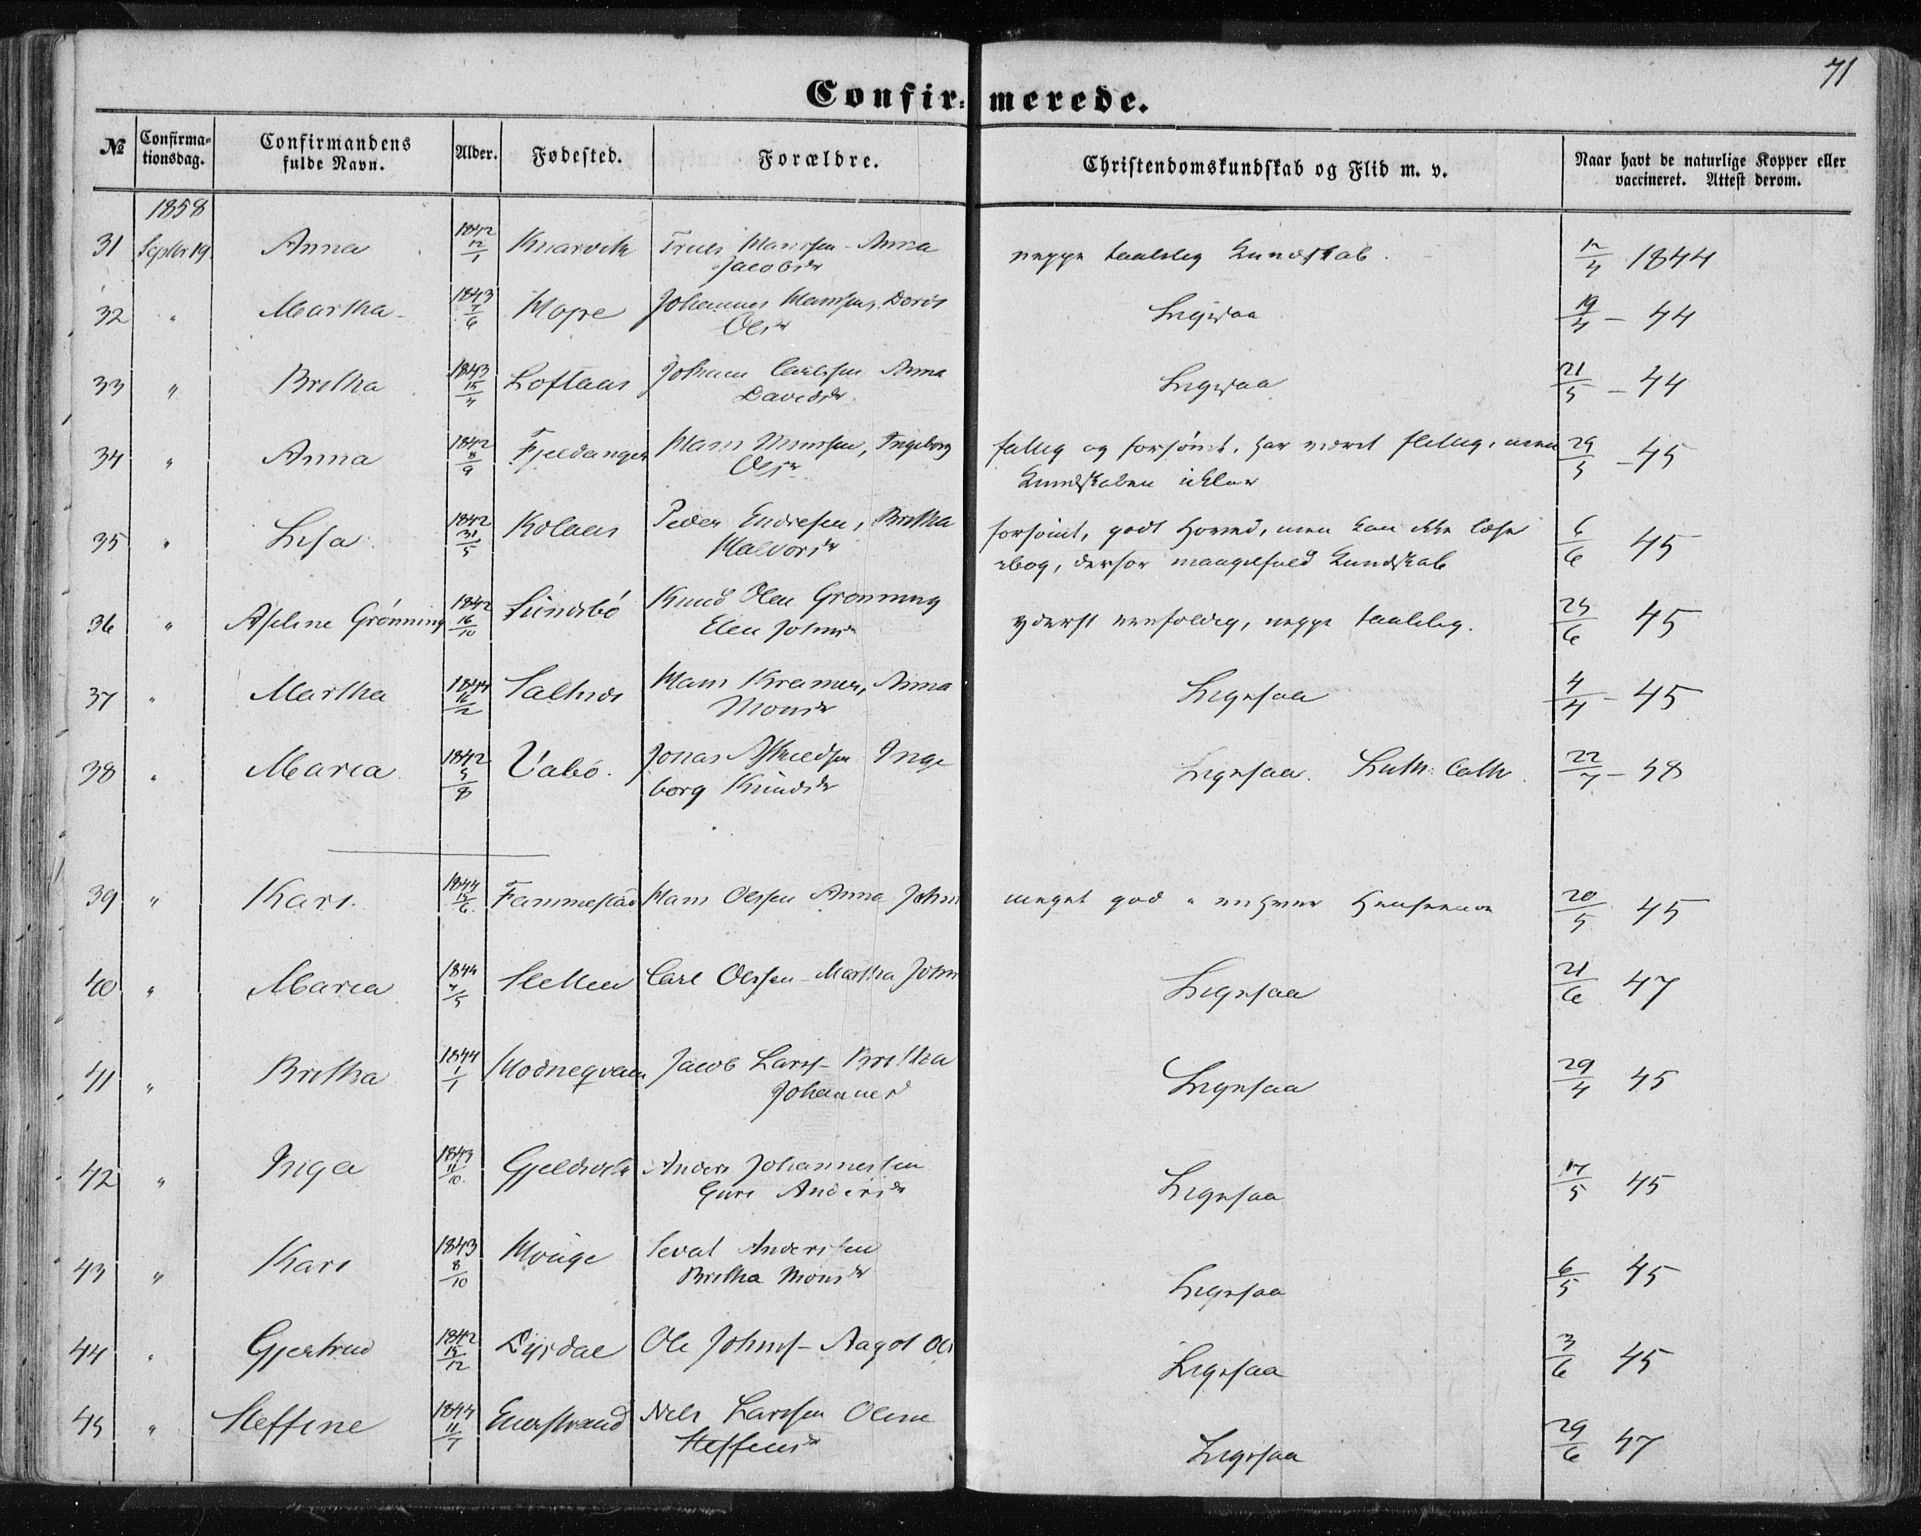 71
Confirmerede.
№ Confirmationsdag. Confirmandens fulde Navn. Alder. Fødested. Forældre. Christendomskundskab og Flid m. v. Naar havt de naturlige Kopper eller vaccineret. Attest derom.
1858
31 Septbr 19 Anna 1842 12/1 Knarvik Truls Hanssen - Anna Jacobsdr neppe taalelig Kundskab. 12/4 1844
32 " Martha 1843 7/6 Hope Johannes Hanssen, Doris Olsdr Ligesaa 19/4 - 44
33 " Britha 1843 15/4 Loftaas Johan Carlssen Anna Davidsdr Ligesaa 21/5 - 44
34 " Anna 1842 8/9 Fjeldanger Hans Monssen, Ingeborg Olsdr fattig og forsømt, har været flittig, men Kundskaben 29/5 - 45
35 " Lisa 1842 31/5 Kolaas Peder Endresen, Britha Halvorsdr forsømt, godt Hoved, men kan ikke læse ibog, derfor mangelfuld Kundskab 6/6 45
36 " Aseline Grønning 1842 16/10 Sundsbø Knud Olen Grønning Elen Johnsdr yderst eenfoldig, neppe taalelig. 25/6 45
37 " Martha 1844 11/2 Saltnes Hans Kramer, Anna Monsdr Ligesaa 4/4 - 45
38 " Maria 1842 5/8 Vabø. Jonas Inge borg Knudsdr Ligesaa. Luth: Cath. 22/7 - 48
39 " Kari. 1844 15/6 Fammestad Hans Olssen Anna Johns meget god i enhver Henseende 20/5 45
40 " Maria 1844 7/5 Hellen Carl Olssen - Martha Johns Ligesaa 21/6 47
41 " Britha 1844 1/1 Hodneqvam Jacob Larss - Britha Johannesd Ligesaa 29/4 45
42 " Inga 1843 11/10 Gjeldvik Anders Johannessen Guri Andersdr Ligesaa 17/5 45
43 " Kari 1843 8/10 Monge Sevat Anderssen Britha Monsdr Ligesaa 6/5 45
44 " Gjertrud 1842 15/12 Dyrdal Ole Johns - Aagot Ols Ligesaa 3/6 45
45 " Steffine 1844 11/1 Enerstrand Nels Larssen Oline Steffensdr Ligesaa 29/6 47